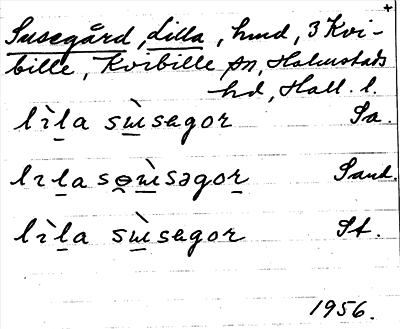 +
Susegård, Lilla, hmd, 3 Kvi-
bille, Kvibille sn, Halmstads
hd, Hall. l.
lìla sùsagor Sa.
lıla sùsəgor Sand.
lìla sùsagor St.
1956.